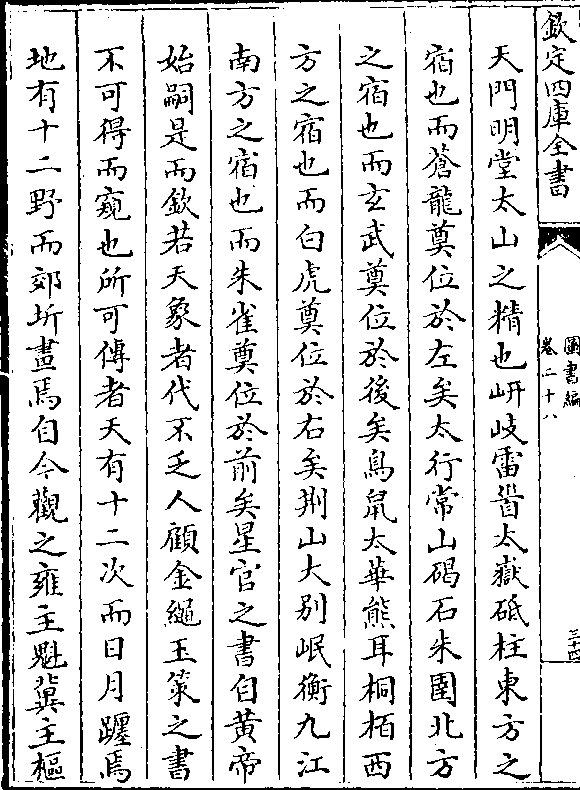 欽定四庫全書
圖書編
卷二十八
三十四
天門明堂太山之精也岍岐雷首太嶽砥柱東方之
宿也而蒼龍奠位於左矣太行常山碣石朱圉北方
之宿也而玄武奠位於後矣鳥鼠太華熊耳桐栢西
方之宿也而白虎奠位於右矣荆山大别岷衡九江
南方之宿也而朱雀奠位於前矣星官之書自黄帝
始嗣是而欽若天象者代不乏人顧金繩玉策之書
不可得而窺也所可傳者天有十二次而日月躔焉
地有十二野而郊圻畫焉自今觀之雍主魁冀主樞